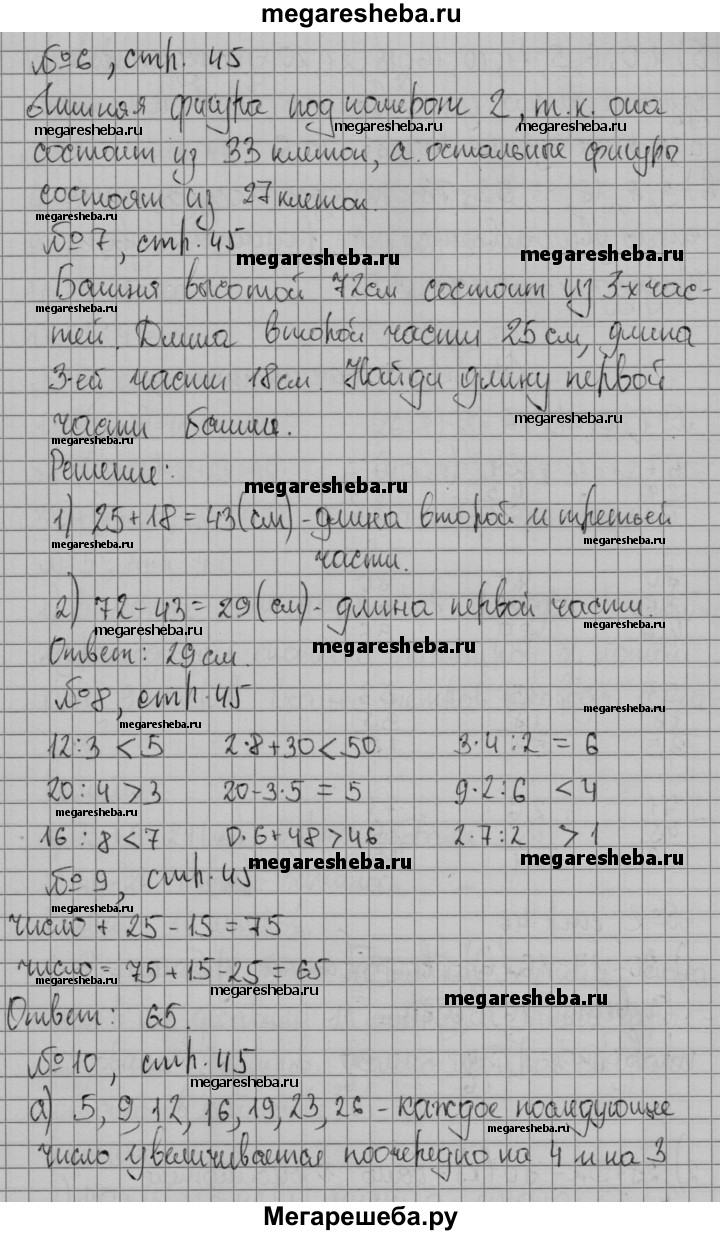 megaresheba.ru
№6, стр. 45
Лишняя фигура под номером 2, т.к. она
megaresheba.ru megaresheba.ru megaresheba.ru
состоит из 33 клеток, а остальные фигуры
megaresheba.ru
состоят из 27 клеток.
megaresheba.ru
№7, стр. 45
megaresheba.ru megaresheba.ru
Башня высотой 72 см состоит из 3-х час-
megaresheba.ru
тей. Длина второй части 25 см, длина
3-ей части 18 см. Найди длину первой
части башни.
megaresheba.ru megaresheba.ru
Решение:
megaresheba.ru
1) 25 + 18 = 43 (см) - длина второй и третьей
megaresheba.ru megaresheba.ru
части.
2) 72 - 43 = 29 (см) - длина первой части.
megaresheba.ru megaresheba.ru
Ответ: 29 см. megaresheba.ru
№8, стр. 45
megaresheba.ru megaresheba.ru
12 : 3 < 5 2·8 + 30 < 50 3·4 : 2 = 6
20 : 4 > 3 20 - 3·5 = 5 9·2 : 6 < 4
megaresheba.ru
16 : 8 < 7 0·6 + 48 > 46 2·7 : 2 > 1
megaresheba.ru megaresheba.ru
№9, стр. 45
megaresheba.ru
число + 25 - 15 = 75
число = 75 + 15 - 25 = 65
megaresheba.ru megaresheba.ru megaresheba.ru
Ответ: 65.
№10, стр. 45
megaresheba.ru
а) 5, 9, 12, 16, 19, 23, 26 - каждое последующее
megaresheba.ru megaresheba.ru
число увеличивается поочередно на 4 и на 3
Мегарешеба.ру